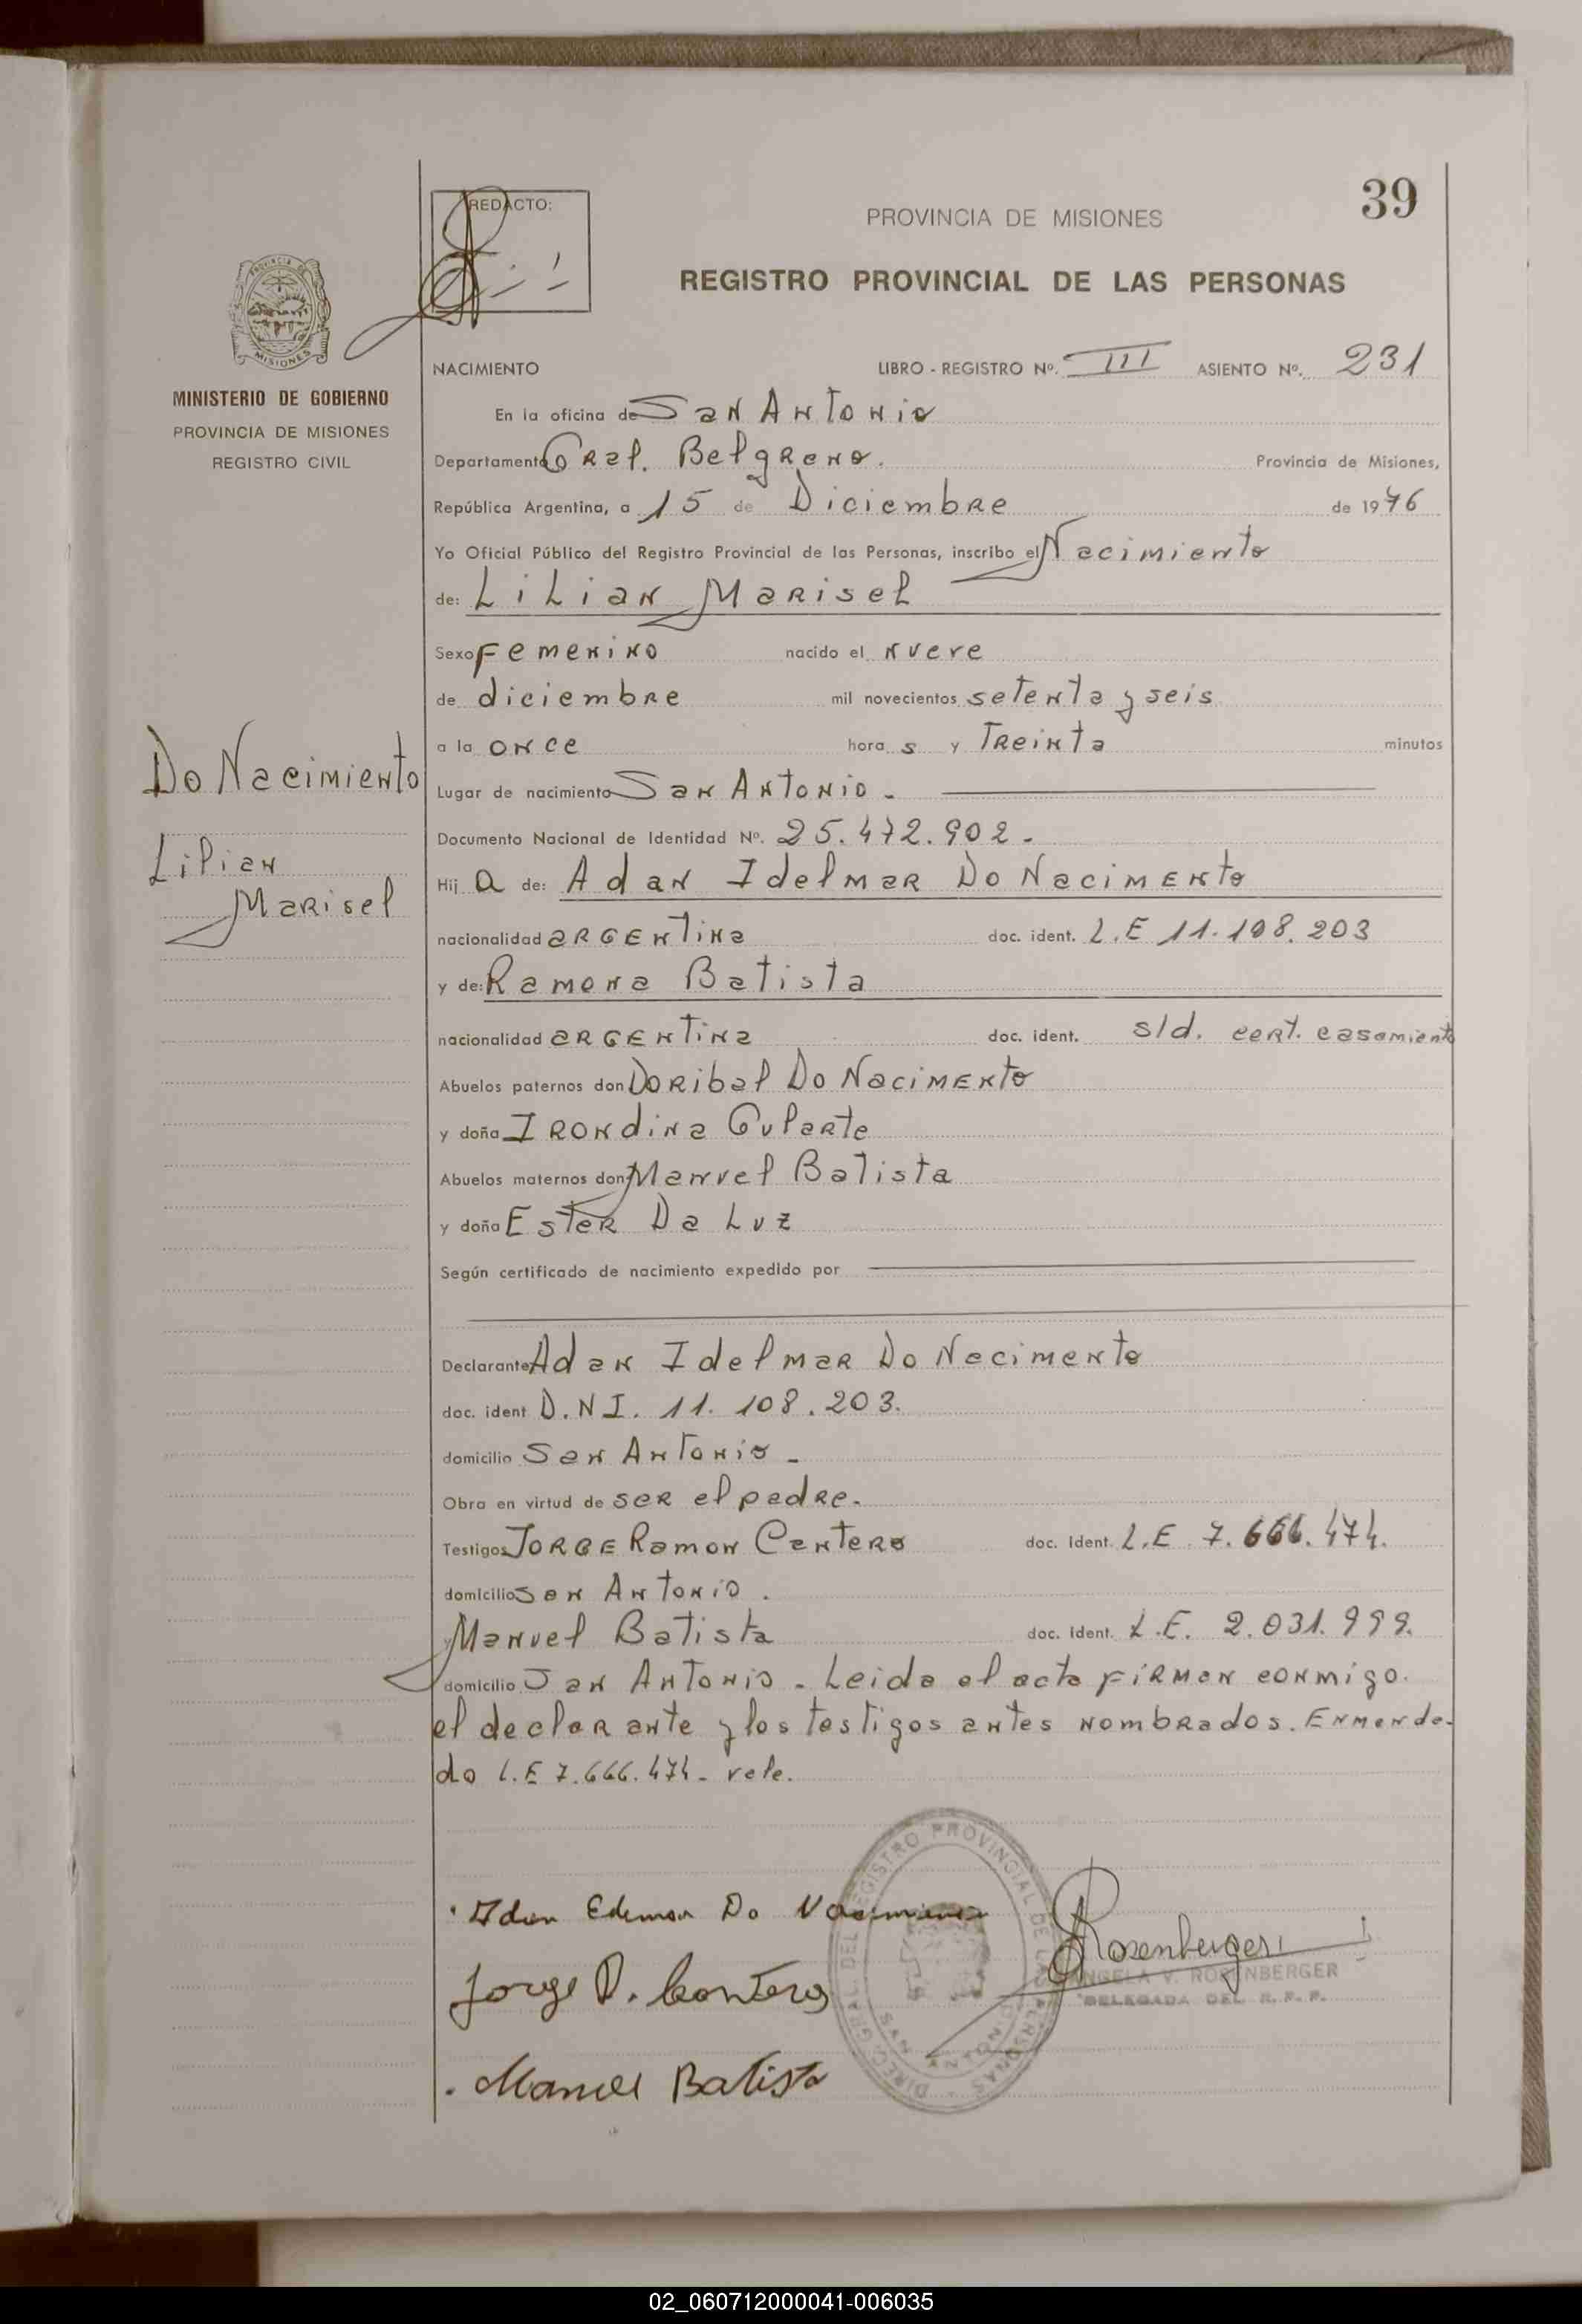 39
REDACTO:
PROVINCIA DE MISIONES
REGISTRO PROVINCIAL DE LAS PERSONAS
PROVINCIA DE
MISIONES
MINISTERIO DE GOBIERNO
PROVINCIA DE MISIONES
REGISTRO CIVIL
NACIMIENTO LIBRO - REGISTRO Nº. III ASIENTO Nº. 231
En la oficina de San Antonio
Departamento Gral. Belgrano. Provincia de Misiones,
República Argentina, a 15 de Diciembre de 1976
Yo Oficial Público del Registro Provincial de las Personas, inscribo el Nacimiento
de: Lilian Marisel
Sexo Femenino nacido el nueve
de diciembre mil novecientos setenta y seis
a la once hora s y Treinta minutos
Do Nacimiento
Lilian
Marisel
Lugar de nacimiento San Antonio -
Documento Nacional de Identidad Nº. 25.472.902.-
Hij a de: Adan Idelmar Do Nacimento
nacionalidad argentina doc. ident. L.E 11.108.203
y de: Ramona Batista
nacionalidad argentina doc. ident. s/d. cert. casamiento
Abuelos paternos don Doribal Do Nacimento
y doña Irondina Gularte
Abuelos maternos don Manuel Batista
y doña Ester Da Luz
Según certificado de nacimiento expedido por
Declarante Adan Idelmar Do Nacimento
doc. ident D.N.I. 11.108.203.
domicilio San Antonio -
Obra en virtud de ser el padre.
Testigos Jorge Ramon Centero doc. ident. L.E 7.666.474.
domicilio San Antonio.
y Manuel Batista doc. ident. L.E. 2.031.999.
domicilio San Antonio - Leida el acta firman conmigo
el declarante y los testigos antes nombrados. Enmenda-
do L.E 7.666.474 - vale.
Adan Edemar Do
Jorge R.
Manuel Batista
Rosenberger
ANGELA V. ROSENBERGER
DELEGADA DEL R. P. P.
DIREC. GRAL. DEL REGISTRO PROVINCIAL DE LAS PERSONAS
SAN ANTONIO
02_060712000041-006035